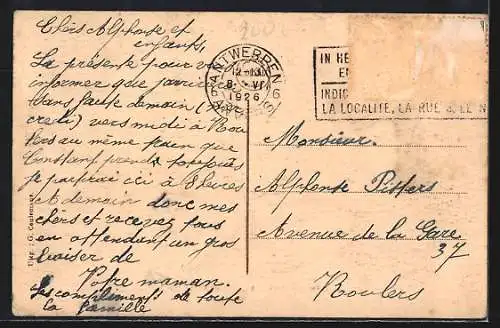 Chers Alphonse et
enfants,
La présente pour vous
informer que j'arrive
sans faute demain (mer
credi) vers midi à Rou
lers au même train que
Constant prends toujours
je partirai ici à 8 heures
A demain donc mes
chers et recevez tous
en attendant un gros
baiser de
Votre maman.
Les compliments de toute
la famille
ANTWERPEN 6
1926
ANVERS
IN HE
EN
INDI
LA LOCALITE, LA RUE & LE N
Monsieur.
Alphonse Pitters
Avenue de la Gare
37
Roulers